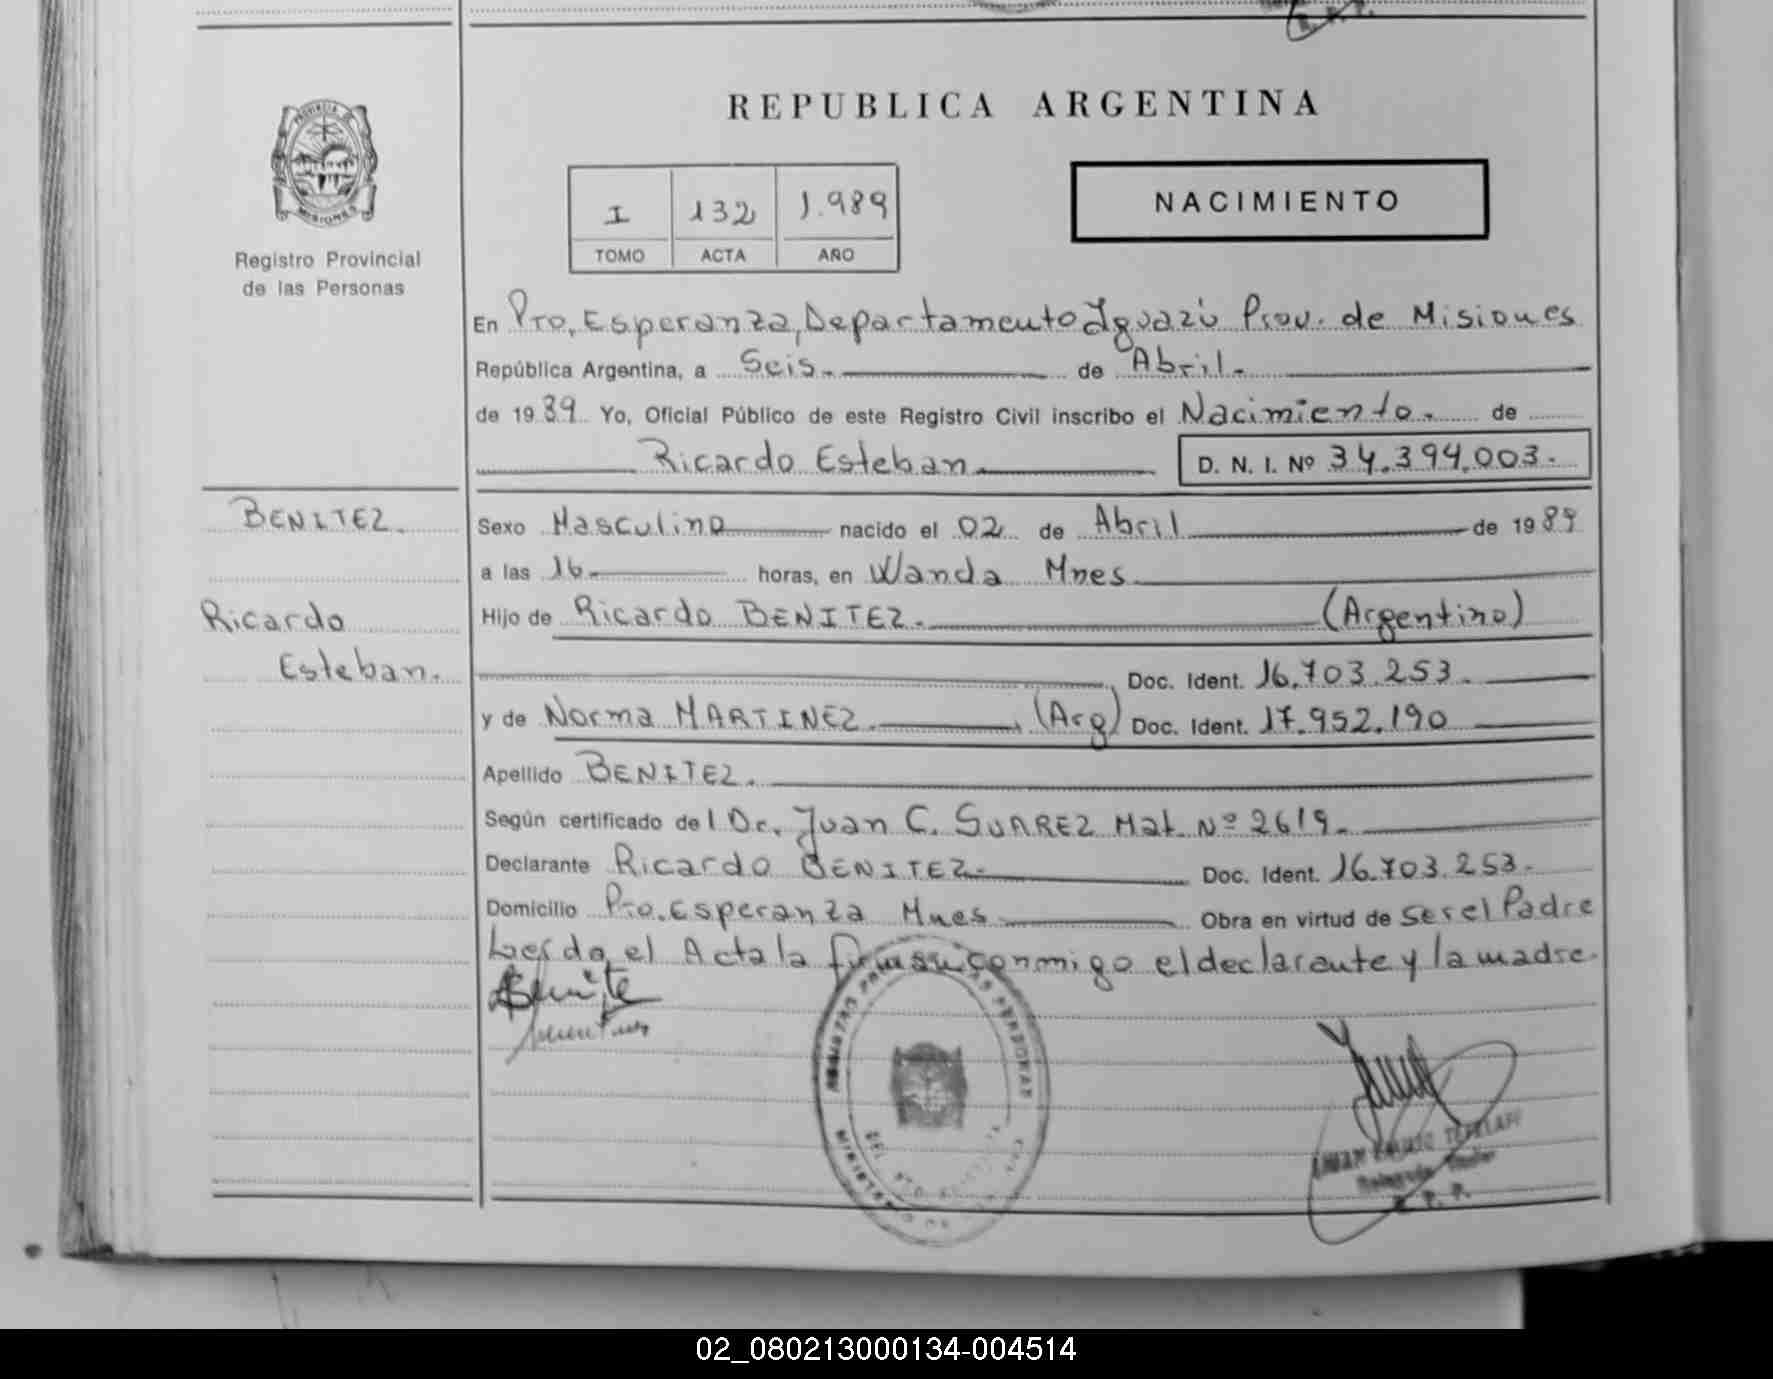 REPUBLICA ARGENTINA
I 132 1.989
TOMO ACTA AÑO
NACIMIENTO
PROVINCIA DE
MISIONES
Registro Provincial
de las Personas
En Pto, Esperanza, Departamento Iguazú Prov. de Misiones
República Argentina, a Seis. de Abril.
de 1989 Yo, Oficial Público de este Registro Civil inscribo el Nacimiento. de
Ricardo Esteban D. N. I. Nº 34.394.003.
BENITEZ.
Ricardo
Esteban.
Sexo Masculino nacido el 02 de Abril de 1989
a las 16 horas, en Wanda Mnes
Hijo de Ricardo BENITEZ. (Argentino)
Doc. Ident. 16.703.253.
y de Norma MARTINEZ. (Arg) Doc. Ident. 17.952.190
Apellido BENITEZ.
Según certificado del Dr. Juan C. SUAREZ Mat. Nº 2619.
Declarante Ricardo BENITEZ. Doc. Ident. 16.703.253.
Domicilio Pto. Esperanza Mnes Obra en virtud de ser el Padre
Leída el Acta la firman conmigo el declarante y la madre.
R. P. P.
02_080213000134-004514